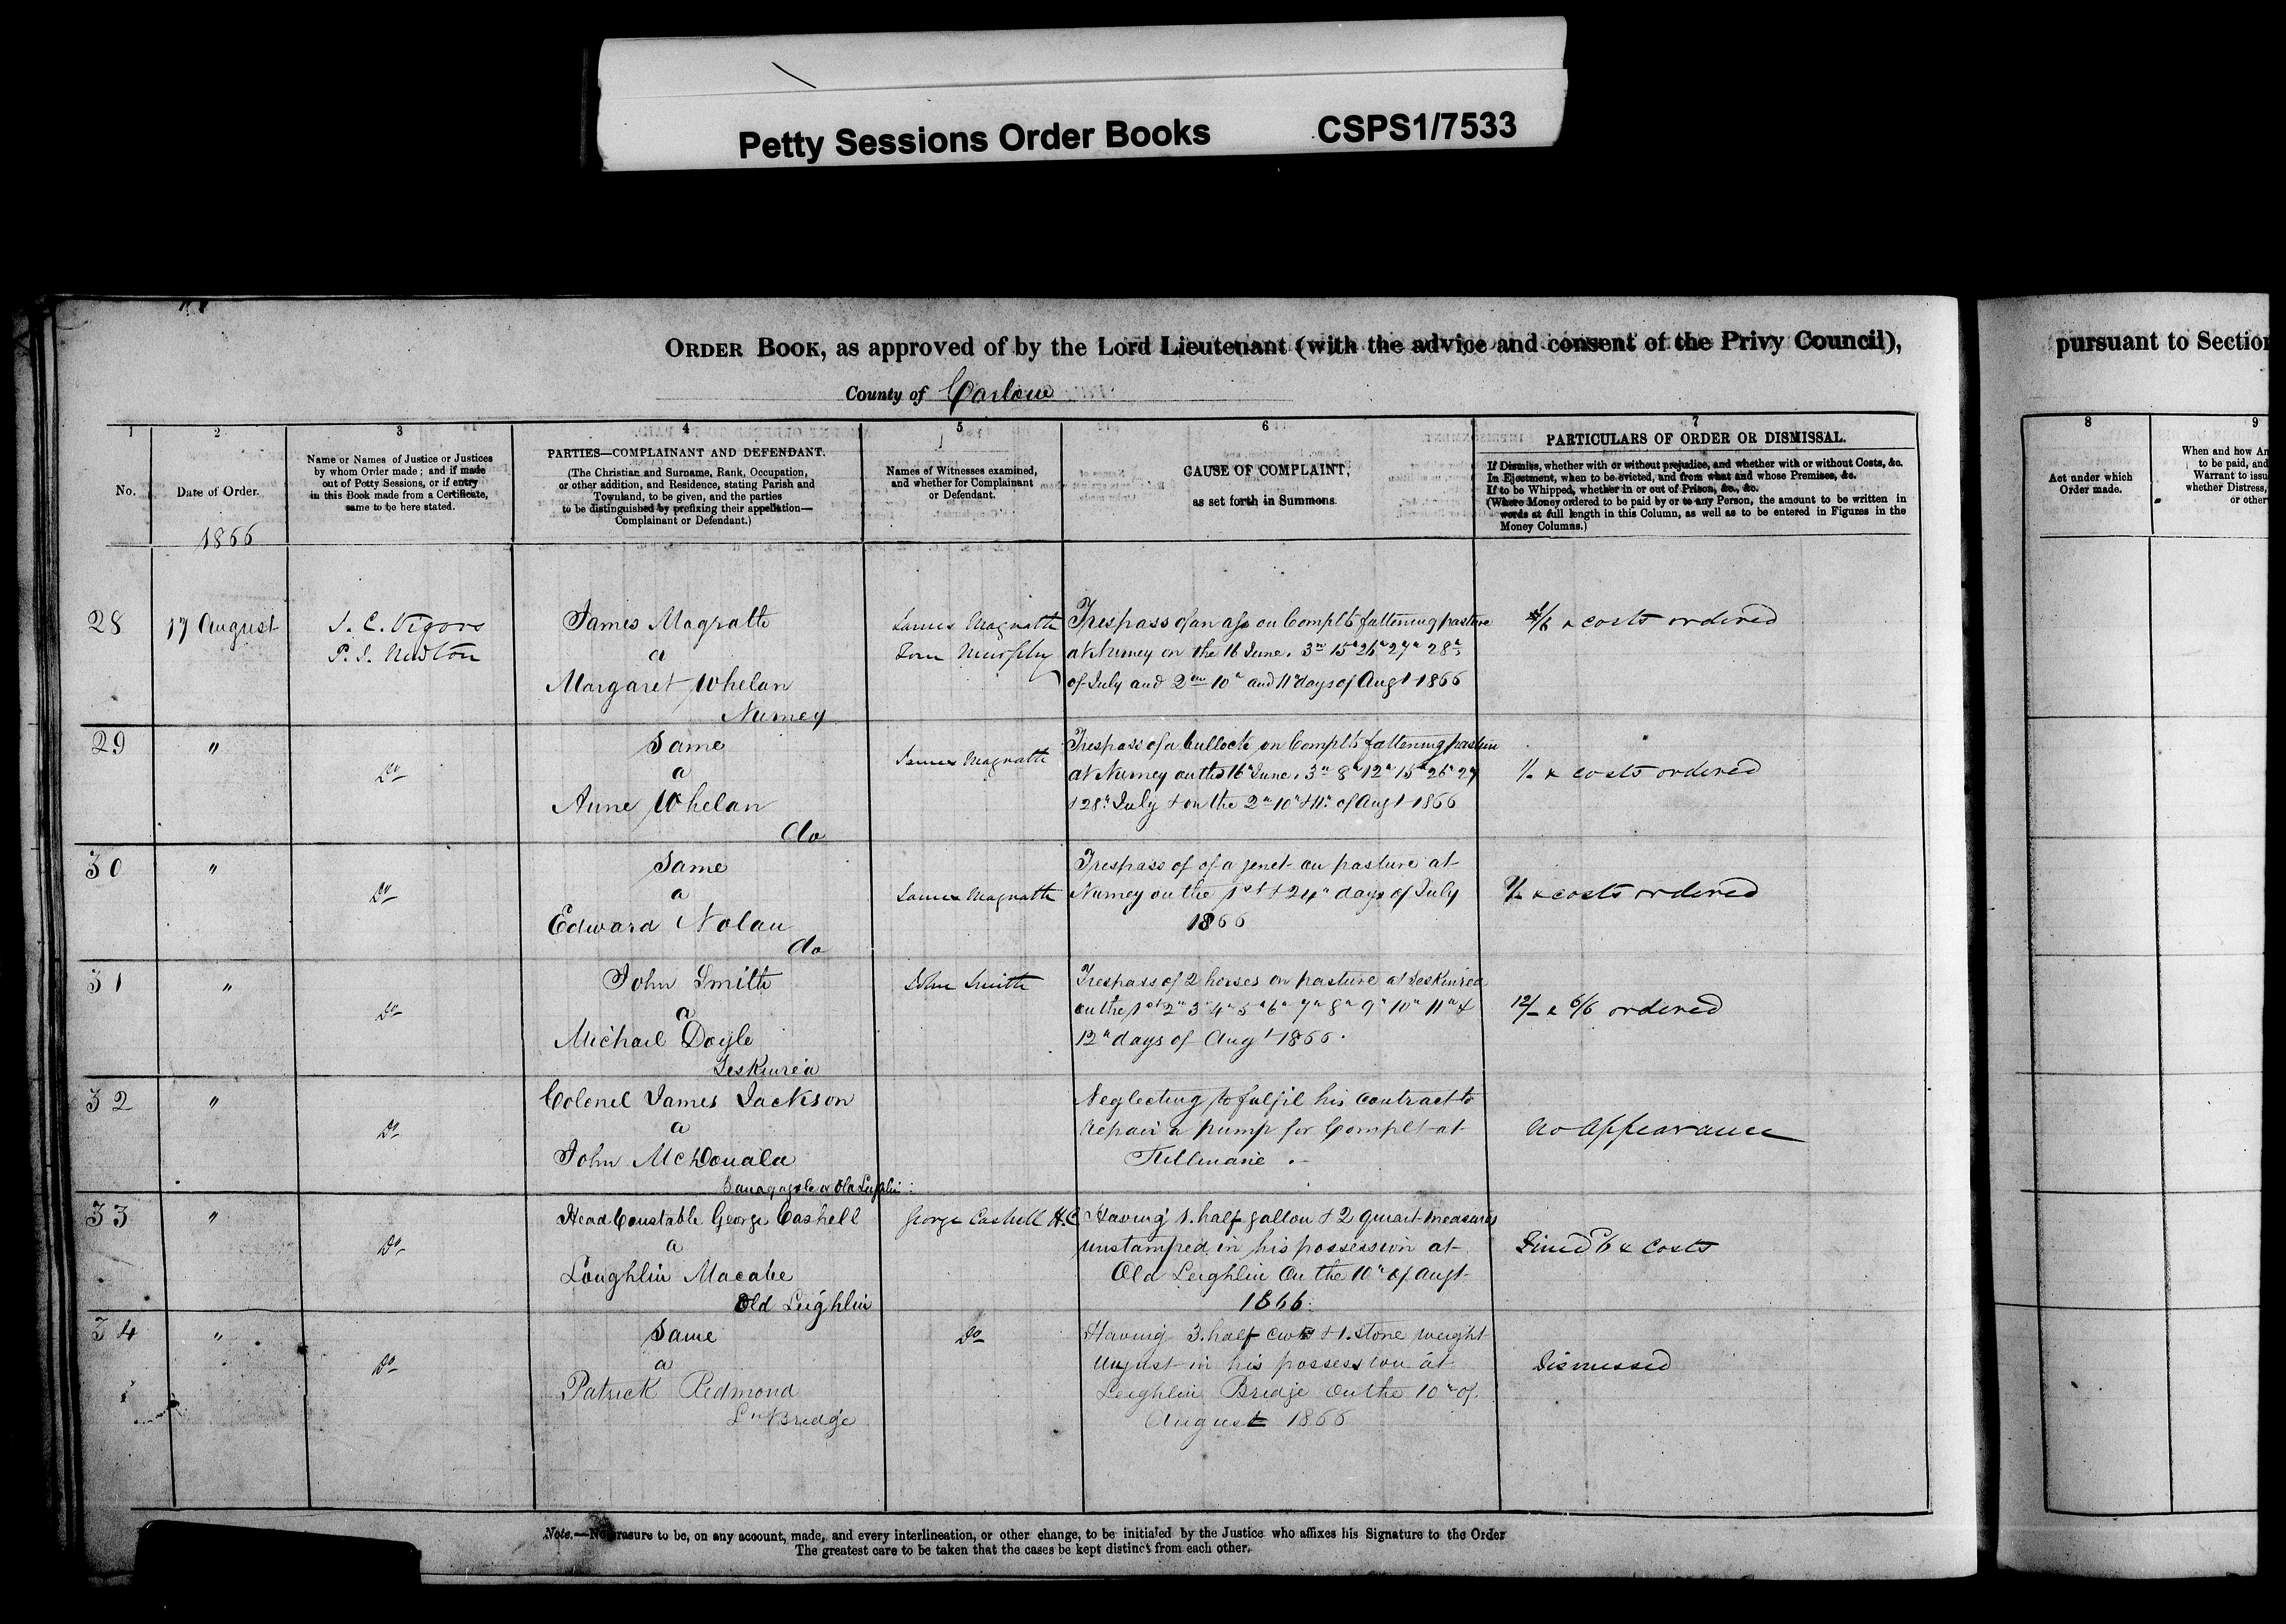 Petty Sessions Order Books CSPS1/7533
ORDER BOOK, as approved of by the Lord Lieutenant (with the advice and consent of the Privy Council),
pursuant to Section
County of Carlow
1
No.
2
Date of Order.
1866
3
Name or Names of Justice or Justices
by whom Order made; and if made
out of Petty Sessions, or if entry
in this Book made from a Certificate,
same to be here stated.
4
PARTIES—COMPLAINANT AND DEFENDANT.
(The Christian and Surname, Rank, Occupation,
or other addition, and Residence, stating Parish and
Townland, to be given, and the parties
to be distinguished by prefixing their appellation—
Complainant or Defendant.)
5
Names of Witnesses examined,
and whether for Complainant
or Defendant.
6
CAUSE OF COMPLAINT,
as set forth in Summons.
7
PARTICULARS OF ORDER OR DISMISSAL.
If Dismiss, whether with or without prejudice, and whether with or without Costs, &c.
In Ejectment, when to be evicted, and from what and whose Premises, &c.
If to be Whipped, whether in or out of Prison, &c., &c.
(Where Money ordered to be paid by or to any Person, the amount to be written in
words at full length in this Column, as well as to be entered in Figures in the
Money Columns.)
8
Act under which
Order made.
9
When and how An
to be paid, and
Warrant to issu
whether Distress,
or other
28
17 August
J. C. Vigors
P. J. Newton
James Magrath
a
Margaret Whelan
Nurney
James Magrath
Murphy
Trespass of an ass on Complts fattening pasture
at Nurney on the 16 June. 3rd 15th 26th 27th 28th
of July and 2nd 10th and 11th days of Augt 1866
/6 & costs ordered
29
"
Do
Same
a
Anne Whelan
do
James Magrath
Trespass of a bullock on Complts fattening pasture
at Nurney on the 16th June. 3rd 8th 12th 15th 26th 27
& 28th July & on the 2nd 10th & 11th of Augt 1866
1/- & costs ordered
30
"
Do
Same
a
Edward Nolan
do
James Magrath
Trespass of of a jenet on pasture at
Nurney on the 1st & 24th days of July
1866
& costs ordered
31
"
Do
John Smith
a
Michael Doyle
Seskinrea
John Smith
Trespass of 2 horses on pasture at Seskinrea
on the 1st 2nd 3rd 4th 5th 6th 7th 8th 9th 10th 11th &
12th days of Augt 1866.
12/- & 6/6 ordered
32
"
Do
Colonel James Jackson
a
John McDonald
or Old Leighlin
Neglecting to fulfil his contract to
repair a pump for Complt at
No appearance
33
"
Do
Head Constable George Cashell
a
Loughlin Macabe
Old Leighlin
George Cashell H.C.
Having 1. half gallon & 2 quart measures
unstamped in his possession at
Old Leighlin On the 10th of Augt
1866.
Fined & costs
34
"
Do
Same
a
Patrick Redmond
Ln Bridge
Do
Having 3. half cwt & 1. stone weight
unjust in his possession at
Leighlin Bridge on the 10th of
August 1866
Dismissed
Note.—No erasure to be, on any account, made, and every interlineation, or other change, to be initialed by the Justice who affixes his Signature to the Order
The greatest care to be taken that the cases be kept distinct from each other.